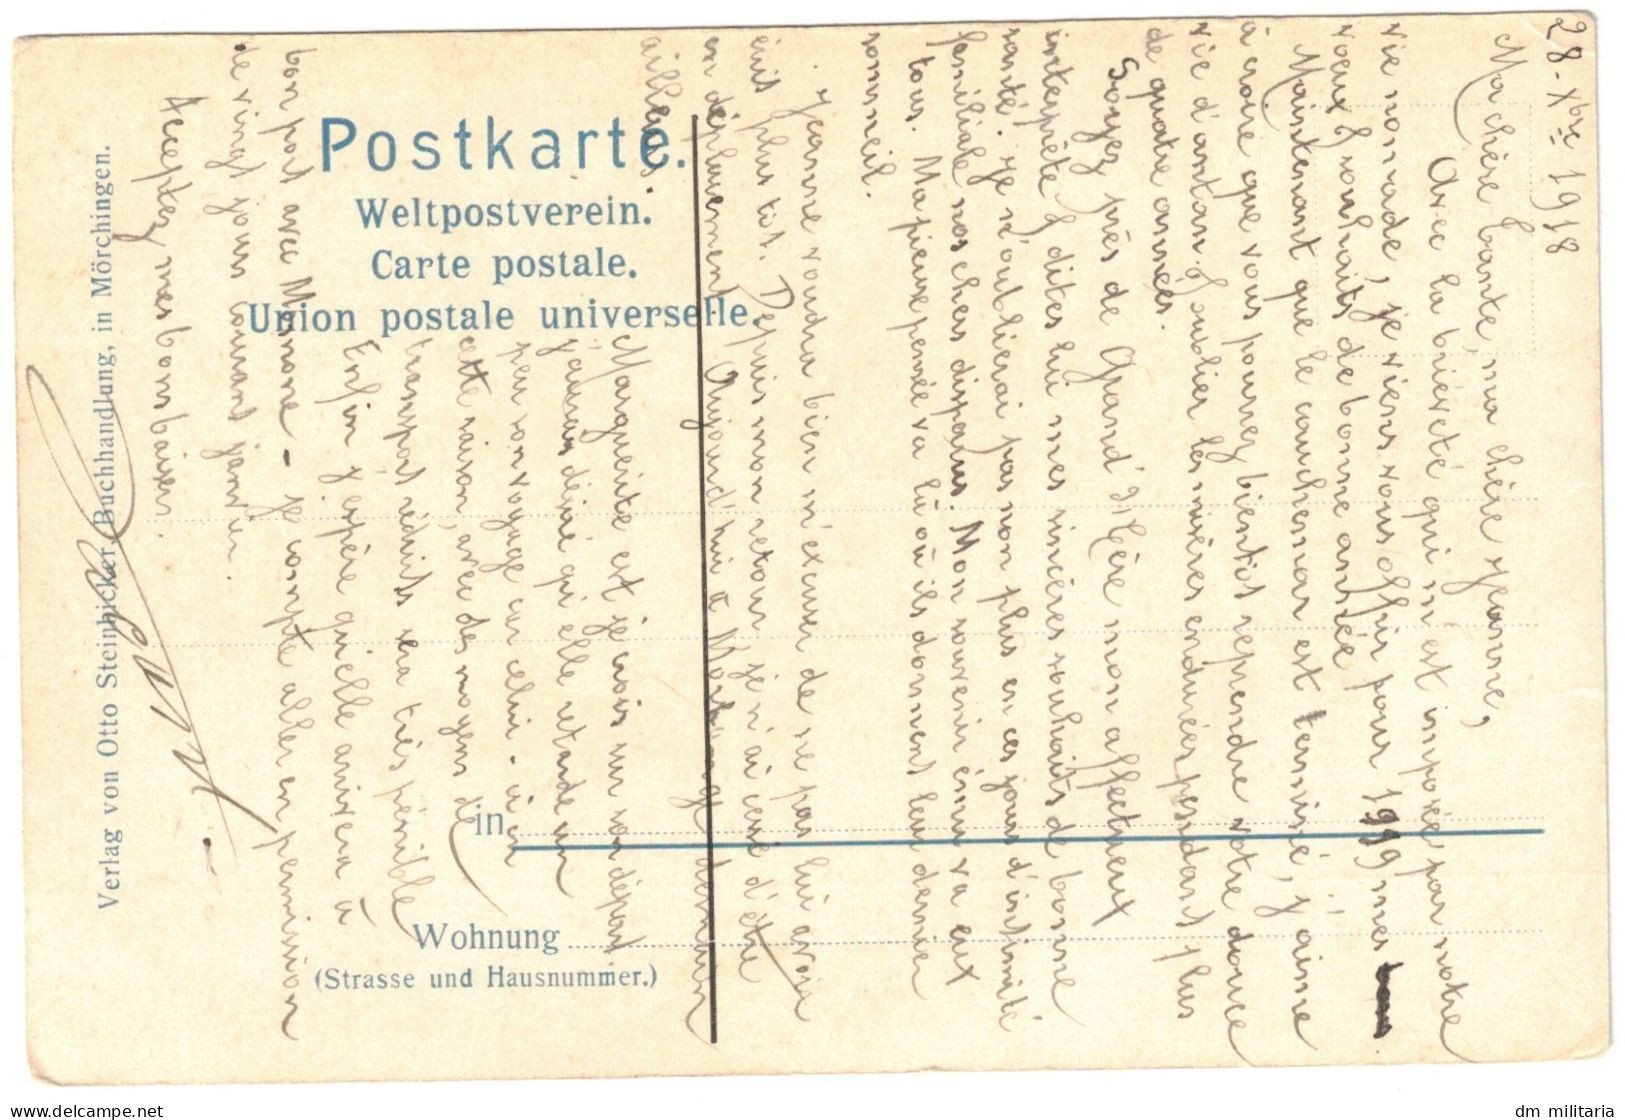 Postkarte.
Weltpostverein.
Carte postale.
Union postale universelle.
in
Wohnung
(Strasse und Hausnummer.)
Verlag von Otto Steinbicker, Buchhandlung, in Mörchingen.
28 - Xbre 1918
Ma chère tante, ma chère Jeanne,
Avec la brièveté qui m'est imposée par notre
vie nomade, je viens vous offrir pour 1919 mes
voeux & souhaits de bonne année
Maintenant que le cauchemar est terminé, j'aime
à croire que vous pourrez bientôt reprendre votre douce
vie d'antan & oublier les misères endurées pendant plus
de quatre années.
Soyez près de Grand'Mère mon affectueux
interprète & dites lui mes sincères souhaits de bonne
santé. Je n'oublierai pas non plus en ces jours d'intimité
familiale nos chers disparus. Mon souvenir ému va eux
tous. Ma pieuse pensée va là où ils dorment leur dernier
sommeil.
Jeanne voudra bien m'excuser de ne pas lui avoir
écrit plus tôt. Depuis mon retour je n'ai cessé d'être
en déplacement. Aujourd'hui à demain
ailleurs.
Marguerite est je crois sur son départ
j'aurais désiré qu'elle retarde un
peu son voyage car celui-ci en
cette saison, avec des moyens de
transport réduits sera très pénible
Enfin j'espère qu'elle arrivera à
bon port avec Monone - je compte aller en permission
de vingt jours courant janvier.
Acceptez mes bons baisers